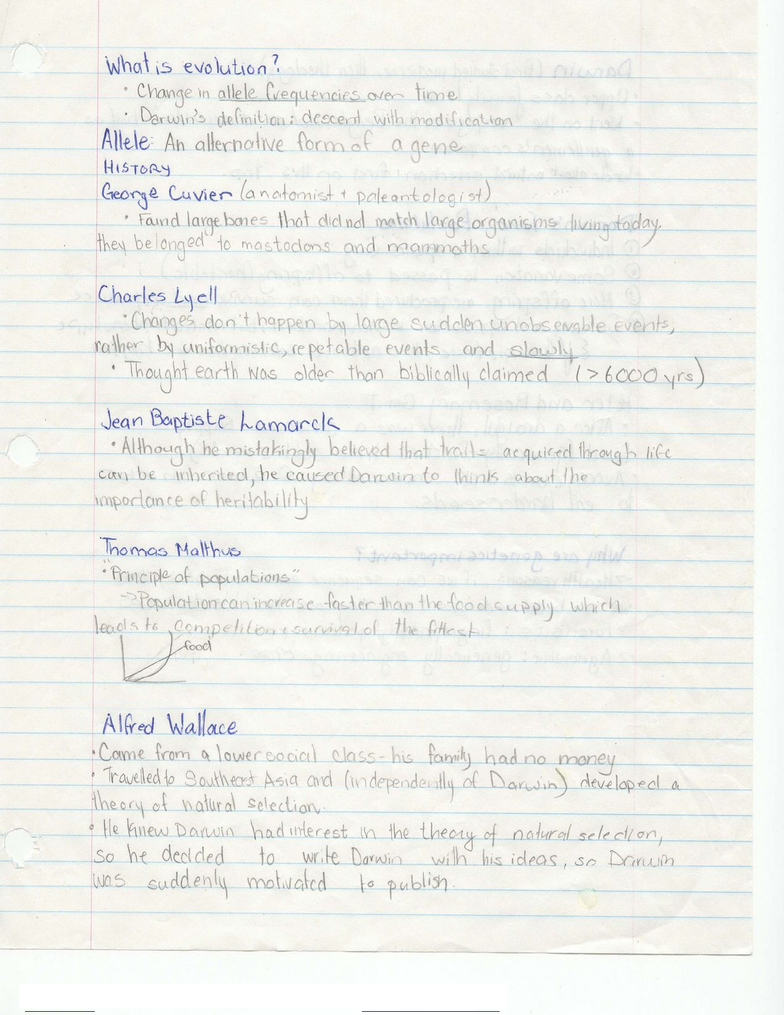 What is evolution?
• Change in allele frequencies over time
• Darwin's definition: descent with modification
Allele: An alternative form of a gene
HISTORY
George Cuvier (anatomist + paleantologist)
• Found large bones that did not match large organisms living today,
they belonged to mastodons and mammoths
Charles Lyell
• Changes don't happen by large sudden unobservable events,
rather by uniformistic, repetable events and slowly
• Thought earth was older than biblically claimed (>6000 yrs)
Jean Baptiste Lamarck
• Although he mistakingly believed that traits acquired through life
can be inherited, he caused Darwin to thinks about the
importance of heritability
Thomas Malthus
• "Principle of populations"
-> Population can increase faster than the food supply which
leads to competition + survival of the fittest
food
Alfred Wallace
• Came from a lower social class - his family had no money
• Travelled to Southeast Asia and (independently of Darwin) developed a
theory of natural selection.
• He knew Darwin had interest in the theory of natural selection,
so he decided to write Darwin with his ideas, so Darwin
was suddenly motivated to publish.